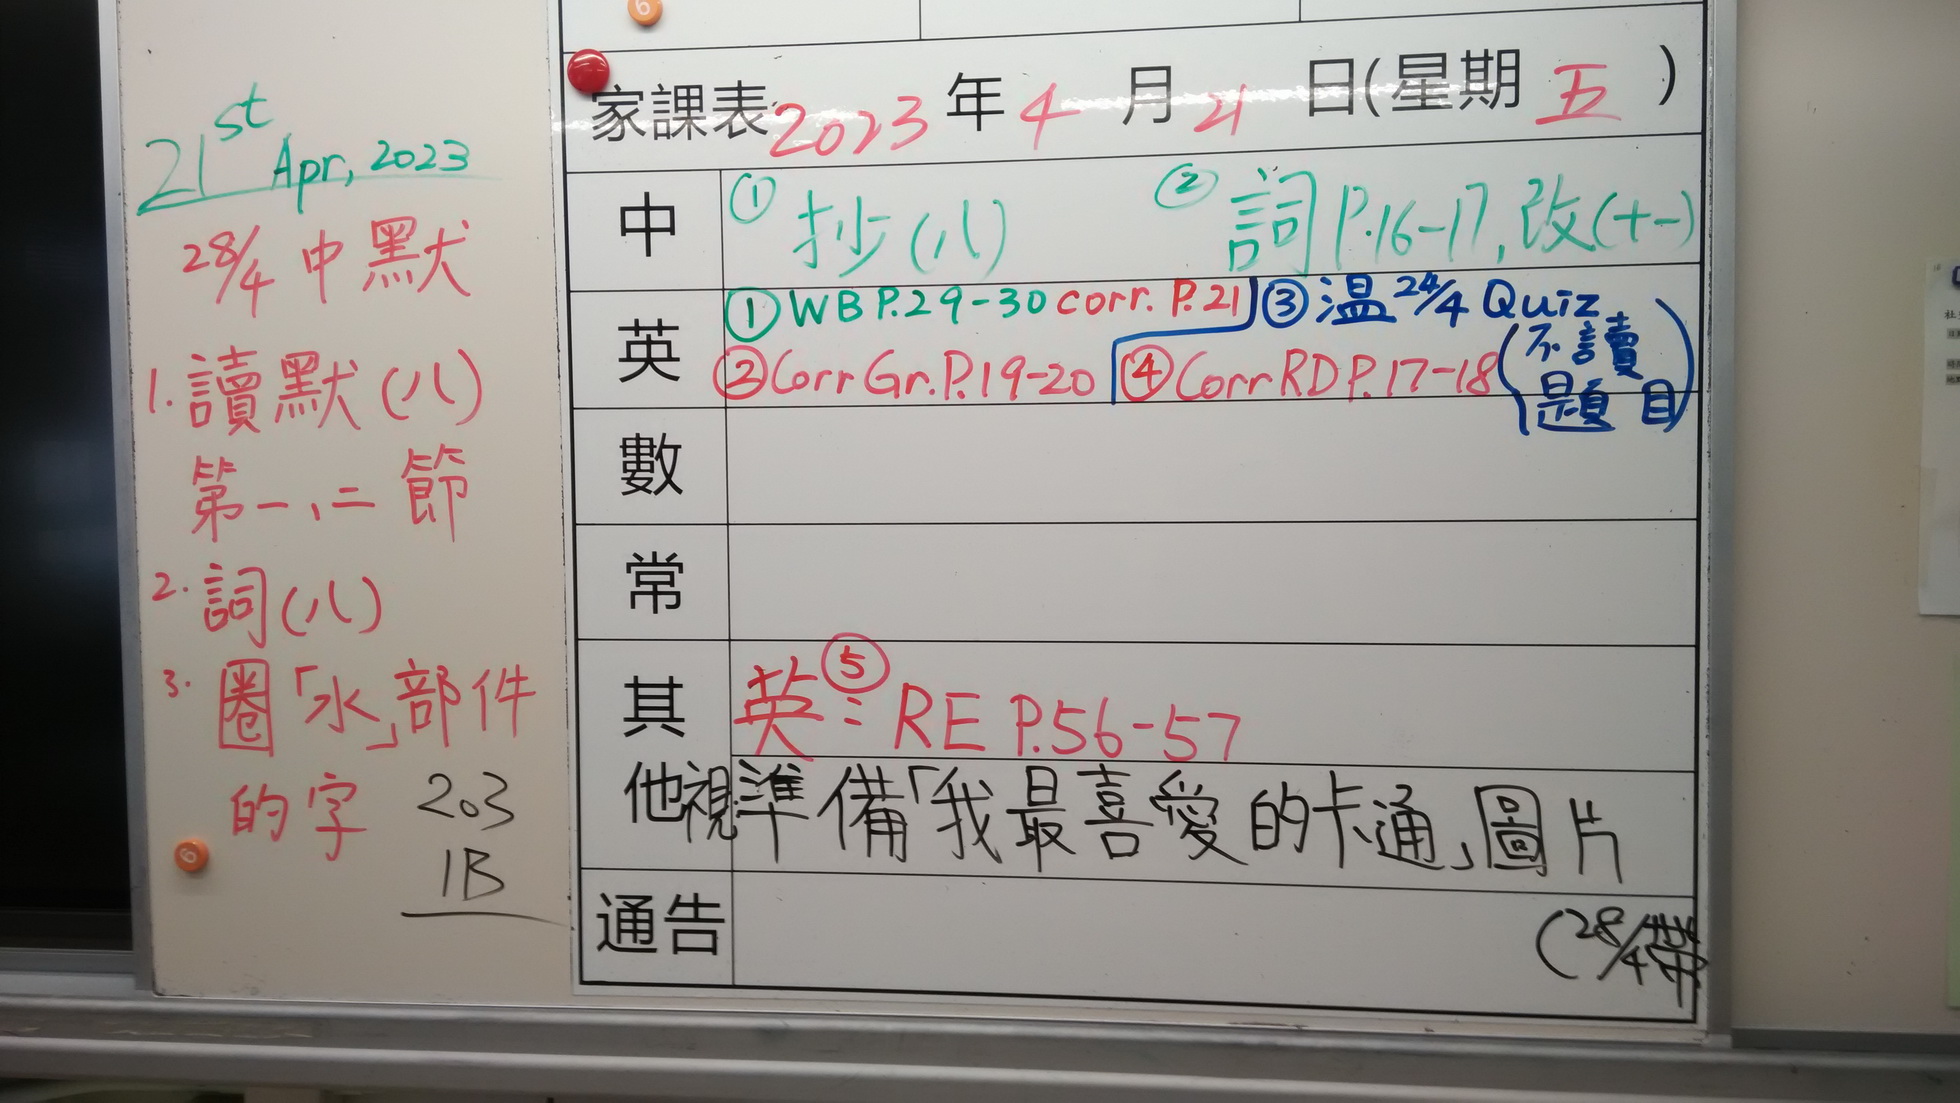 6
21st Apr, 2023
28/4 中默
1. 讀默(八)
第一、二節
2. 詞(八)
3. 圈「水」部件
的字
203
1B
6
家課表 2023 年 4 月 21 日(星期 五 )
中 ① 抄(八) ② 詞 P.16-17, 改(十一)
英 ① WB P.29-30 corr. P.21 ③ 溫 24/4 Quiz
② Corr Gr. P.19-20 ④ Corr RD P.17-18 (不讀題目)
數
常
其他 英⑤: RE P.56-57
視 準備「我最喜愛的卡通」圖片
通告
(28/4帶